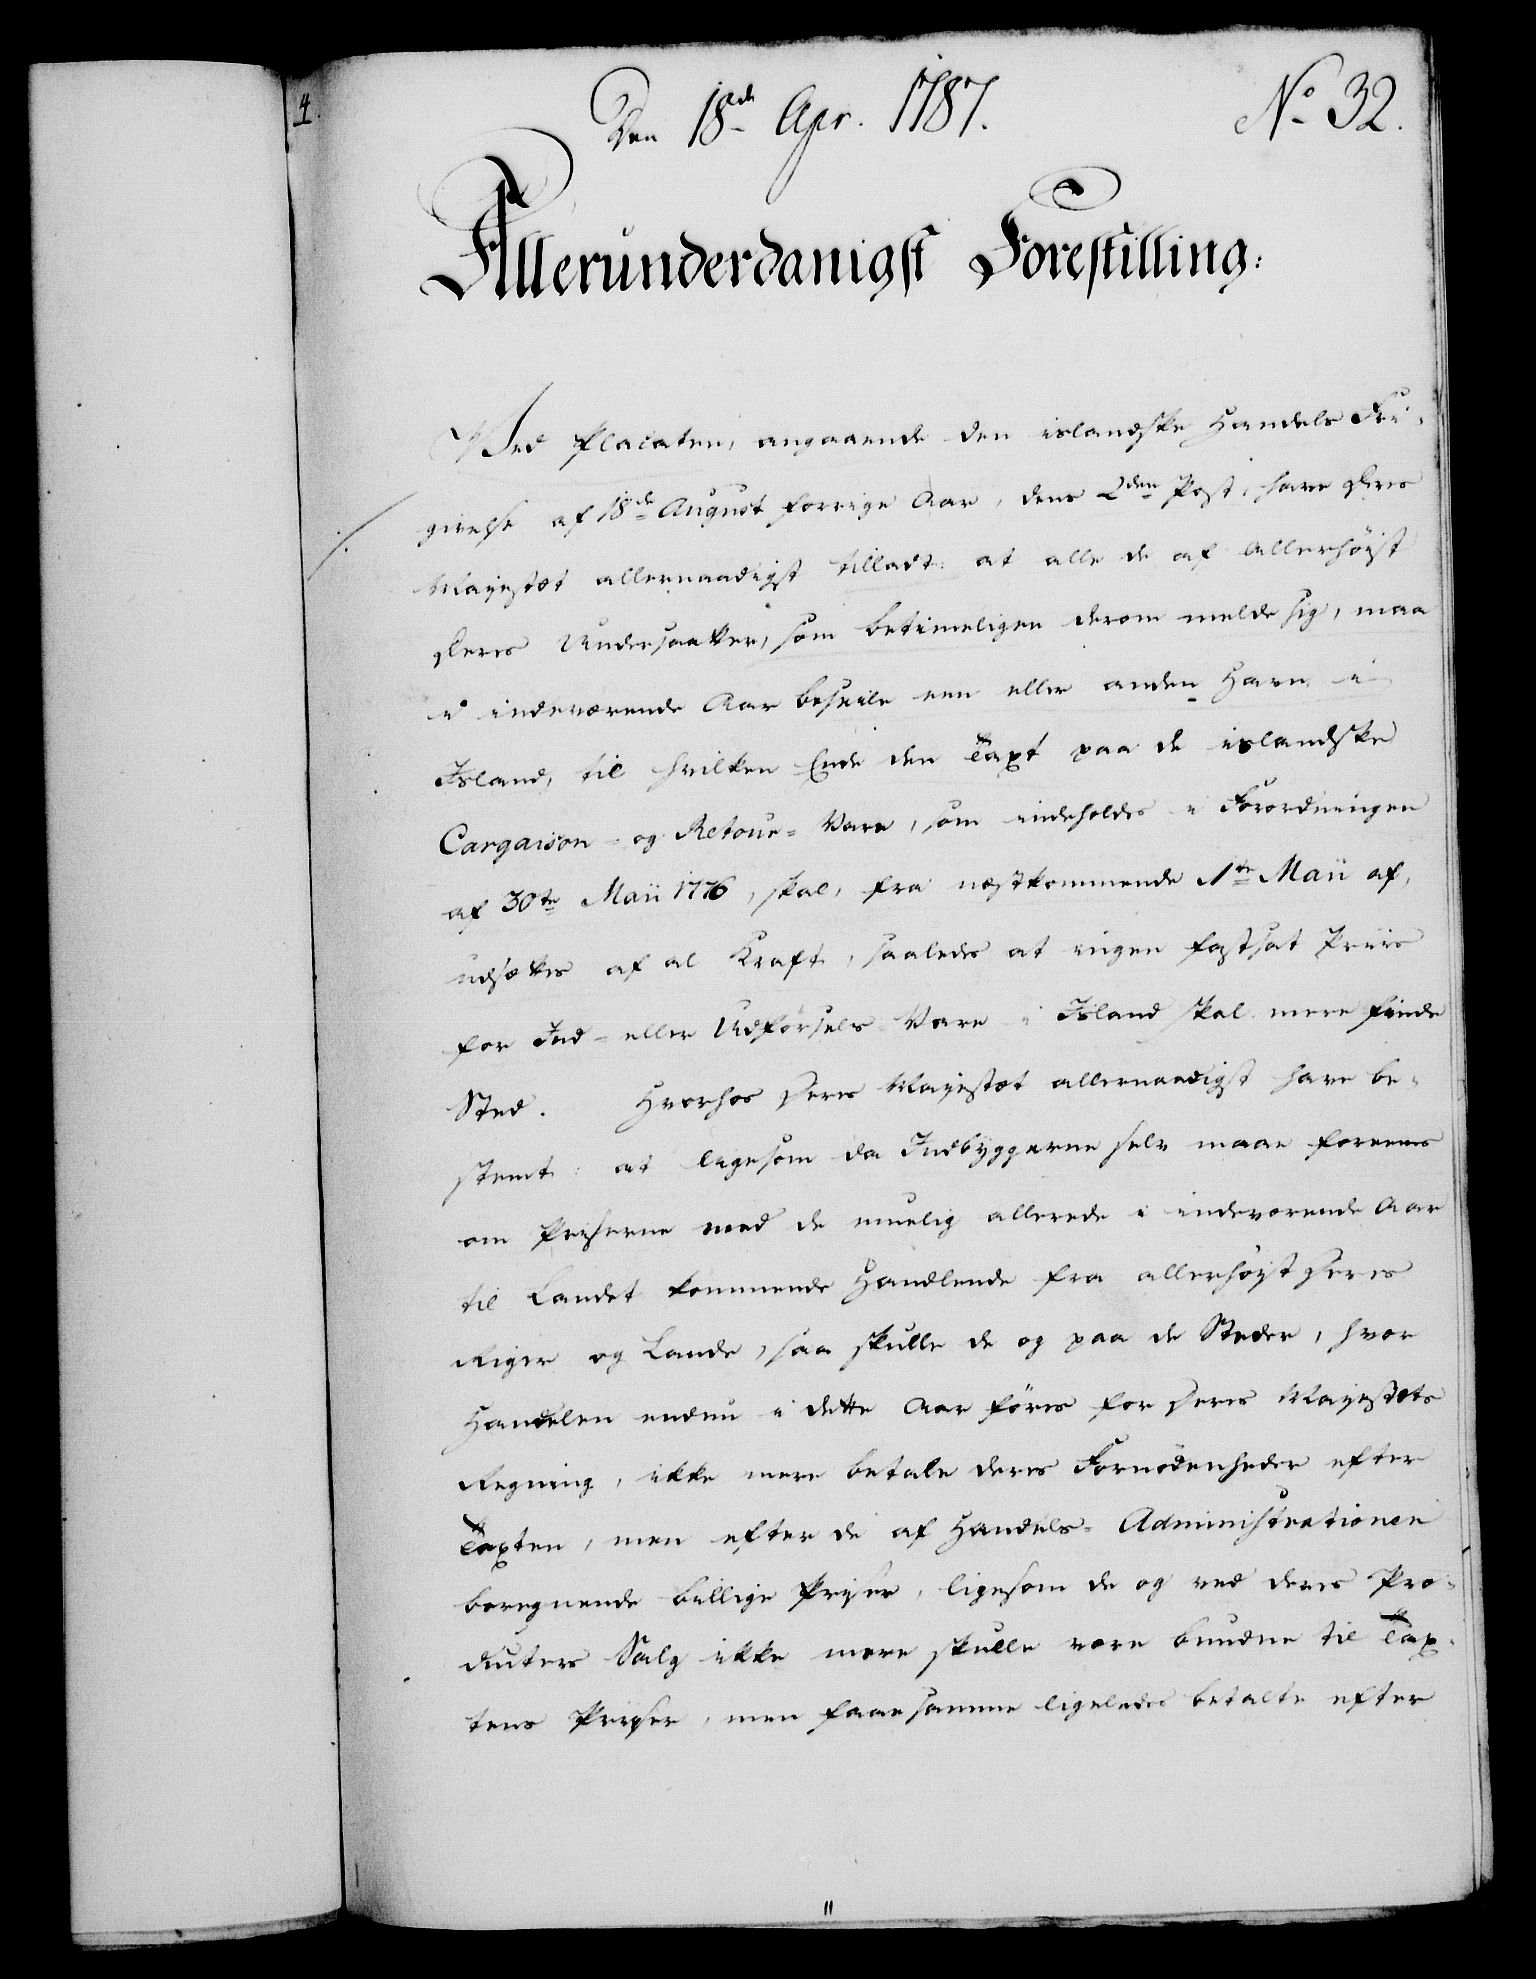 4.
Den 18de Apr. 1787. No 32.
Allerunderdanigst Forestilling:
Ved Placaten, angaaende den islandske Handels Fri-
givelse af 18de August forrige Aar, dens 2den Post, have Deres
Mayestæt allernaadigst tilladt: at alle de af Allerhöyst
Deres Undersaatter, som betimeligen derom melde sig, maa
i indeværende Aar beseile een eller anden Havn i
Island, til hvilken Ende den Taxt paa de islandske
Cargaison- og Retour-Vare, som indeholdes i Forordningen
af 30te Maii 1776, skal, fra næstkommende 1te Maii af,
udsættes af al Kraft, saaledes at ingen fastsat Priis
for Ind- eller Udförsels-Vare i Island skal mere finde
Sted. Hvorhos Deres Mayestæt allernaadigst have be-
stemt: at ligesom da Indbyggerne selv maae foreenes
om Priserne med de muelig allerede i indeværende Aar
til Landet kommende Handlende fra allerhöyst Deres
Riger og Lande, saa skulle de og paa de Steder, hvor
Handelen endnu i dette Aar föres for Deres Mayestæts
Regning, ikke mere betale deres Fornödenheder efter
Taxten, men efter de af Handels-Administrationen
beregnende billige Priser, ligesom de og ved deres Pro-
ducters Salg ikke mere skulle være bundne til Tax-
tens Priser, men faae samme ligeledes betalte efter